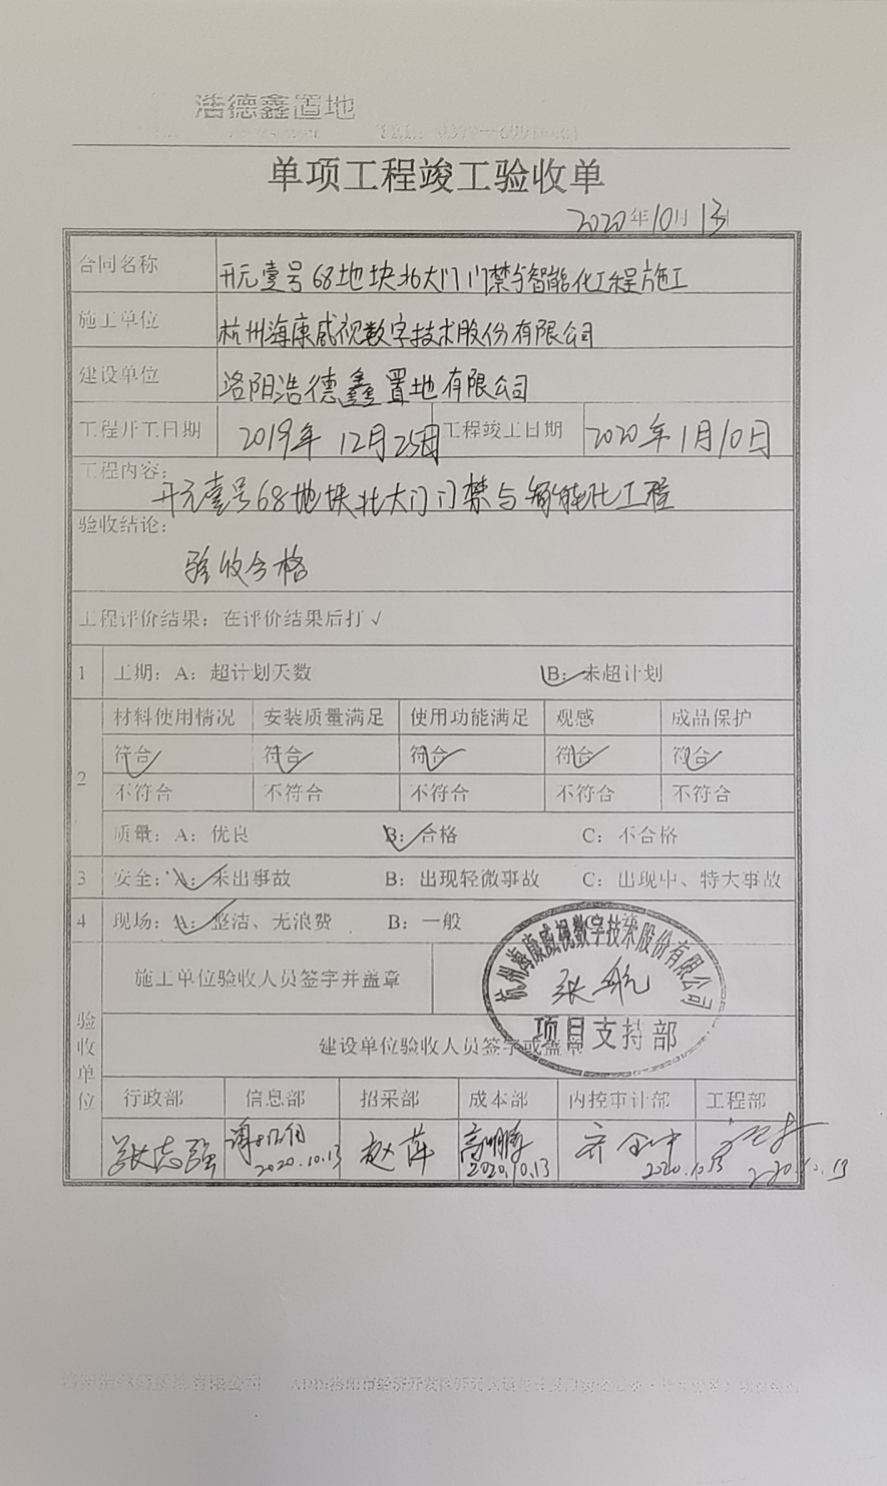 浩德鑫置地
单项工程竣工验收单
2020年10月13日
合同名称 开元壹号68地块北大门门禁与智能化工程施工
施工单位 杭州海康威视数字技术股份有限公司
建设单位 洛阳浩德鑫置地有限公司
工程开工日期 2019年12月25日 工程竣工日期 2020年1月10日
工程内容:
开元壹号68地块北大门门禁与智能化工程
验收结论:
验收合格
工程评价结果: 在评价结果后打 √
1 工期: A: 超计划天数 B: 未超计划
材料使用情况 安装质量满足 使用功能满足 观感 成品保护
符合 符合 符合 符合 符合
2
不符合 不符合 不符合 不符合 不符合
质量: A: 优良 B: 合格 C: 不合格
3 安全: A: 未出事故 B: 出现轻微事故 C: 出现中、特大事故
4 现场: A: 整洁、无浪费 B: 一般
杭州海康威视数字技术股份有限公司
施工单位验收人员签字并盖章 张航
项目支持部
验收单位
建设单位验收人员签字或盖章
行政部 信息部 招采部 成本部 内控审计部 工程部
张志强 赵萍 高鹏
2020.10.13 2020.10.13 2020.10.13 2020.10.13